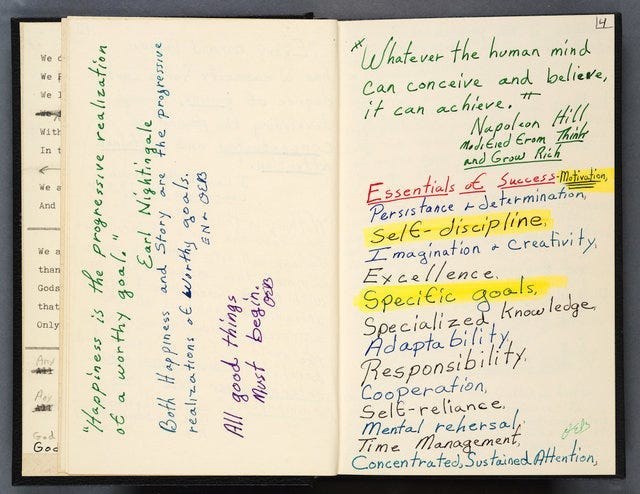 We d
We l
With
In t
We a
And
We a
than
Gods
that
Only
Any
All
All
God
"Happiness is the progressive realization
of a worthy goal."
Earl Nightingale
Both Happiness and Story are the progressive
realizations of worthy goals.
EN & OEB
All good things
Must begin.
OEB
4
"Whatever the human mind
can conceive and believe,
it can achieve."
Napoleon Hill
Modified From Think
and Grow Rich
Essentials of Success-Motivation,
Persistance & determination,
Self-discipline,
Imagination & Creativity,
Excellence,
Specific goals,
Specialized Knowledge,
Adaptability,
Responsibility,
Cooperation,
Self-reliance,
Mental rehersal,
OEB
Time Management,
Concentrated, Sustained Attention,